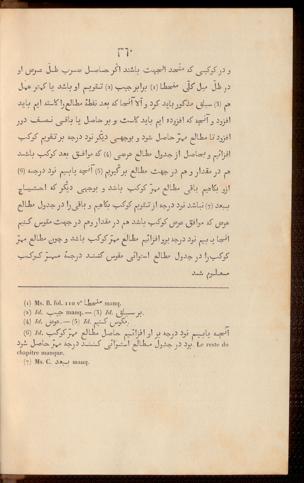 ٣٦٠
و در کوکبی که متحد الجهت باشند اگر حاصل ضرب ظلّ عرض او
در ظلّ میل کلّی منحطا (1) برابر جیب (2) تقویم او باشد یا کمتر عمل
هم (3) سابق مذکور باید کرد و آلا آنجا که بعد نقطهٔ مطالع را کاسته ایم باید
افزود و آنچه که افزوده ایم باید کاست و بر حاصل یا باقی نصف دور
افزود تا مطالع مهرّ حاصل شود و بوجهی دیگر نود درجه بر تقویم کوکب
افزائیم و بحاصل از جدول مطالع عرضی (4) که موافق بعد کوکب باشد
هم در مقدار و هم در جهت مطالع برگیریم (5) آنچه یابیم نود درجه (6)
ازو بکاهیم باقی مطالع مهرّ کوکب باشد و بوجهی دیگر که احتیاج
ببعد (7) نباشد نود درجه از تقویم کوکب بکاهیم و باقی را در جدول مطالع
عرض که موافق عرض کوکب باشد هم در مقدار و هم در جهت مقوس کنیم
آنجا یابیم نود درجه برو افزائیم مطالع مهرّ کوکب باشد و چون مطالع مهرّ
کوکب را در جدول مطالع استوائی مقوس کنند درجهٔ مهرّ کوکب
معلوم شد
(1) Ms. B. fol. 110 v° منحطا manq.
(2) Id. جیب manq. — (3) Id. بر سابق.
(4) Id. عرض. — (5) Id. مقوس کنیم.
(6) Id. آنچه یابیم نود درجه بر او افزائیم حاصل مطالع مهرّ کوکب
بود در جدول مطالع استوائی کنند درجه مهرّ حاصل شود. Le reste du
chapitre manque.
(7) Ms. C. ببعد manq.